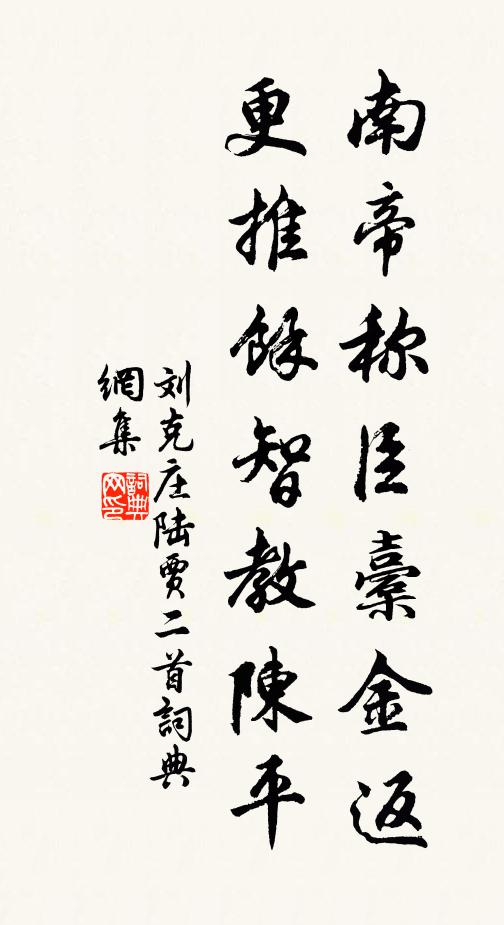 南帝称臣橐金返
更推餘智教陳平
刘克庄陆贾二首詞典
網集
詞典
网印